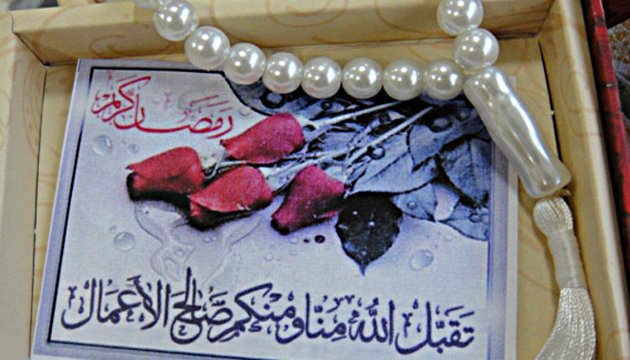 رمضان كريم
تَقَبَّل اللّٰه مِنّا و مِنكُم صَالِحَ الأَعمَال